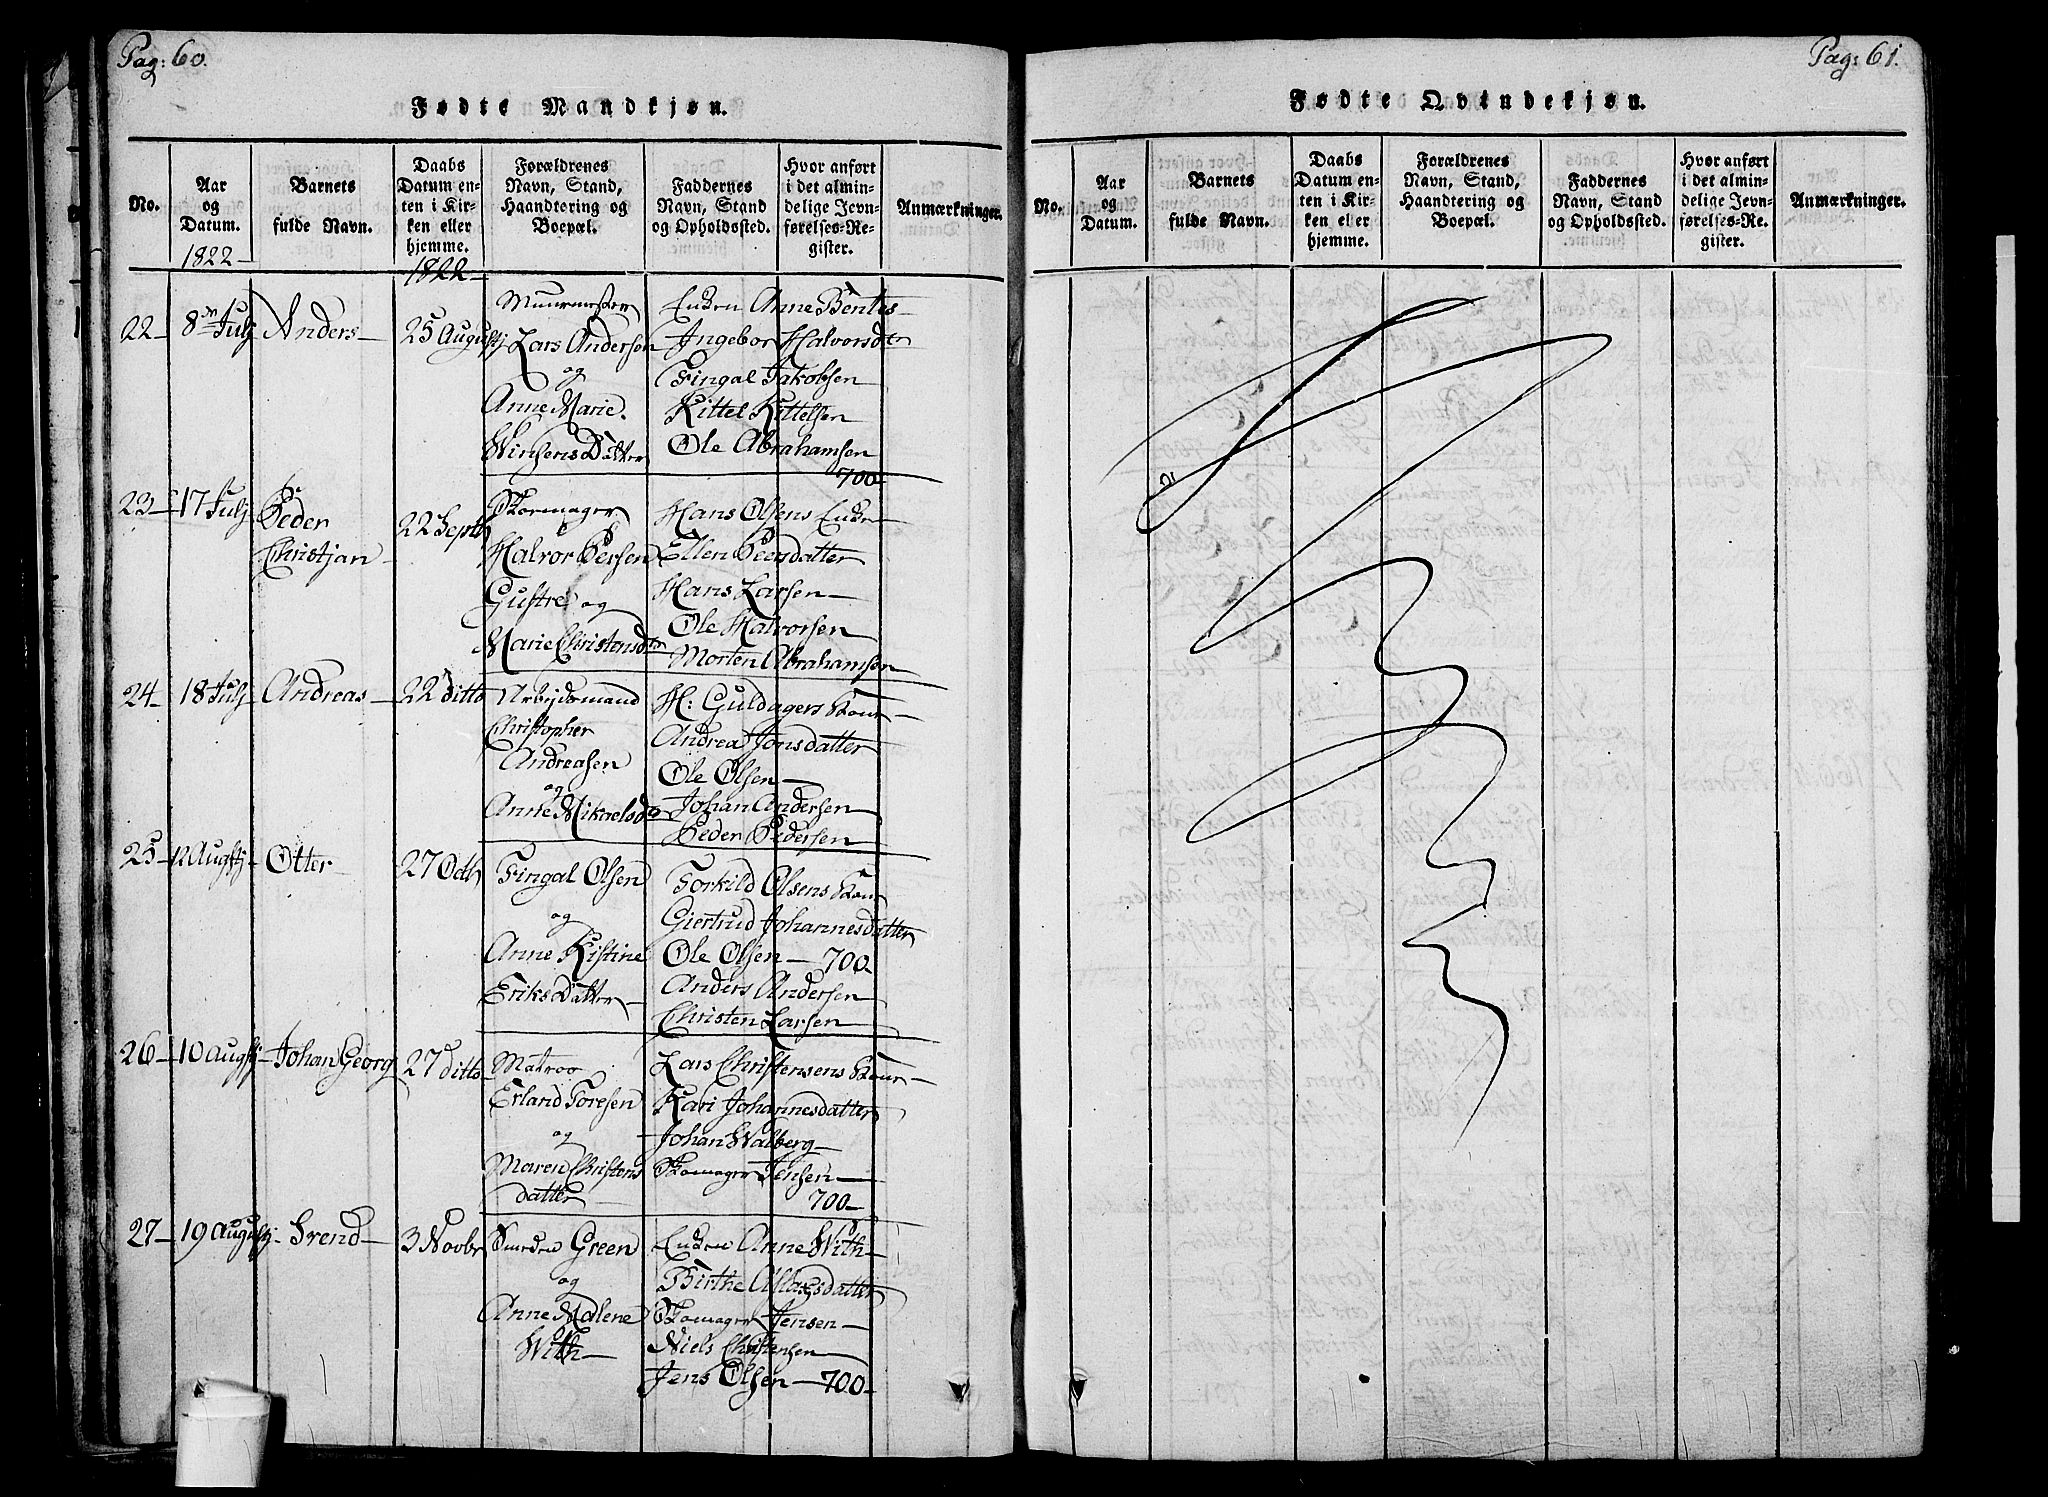 Pag: 60.
Fødte Mandkjøn.
No.
Aar
og
Datum.
1822
Barnets
fulde Navn.
Daabs
Datum en-
ten i Kir-
ken eller
hjemme.
1822
Forældrenes
Navn, Stand,
Haandtering og
Boepæl.
Faddernes
Navn, Stand
og Opholdssted.
Hvor anført
i det almin-
delige Jevn-
førelses-Re-
gister.
Anmærkninger.
22
8de Julj
Anders
25 Augustj
Muurmester
Lars Andersen
og
Anne Marie
Datter
Enken Anne Bentes
Ingebor Halvorsdtr
Fingal Jakobsen
Kittel Kittelsen
Ole Abrahamsen
700
23
17 Julj
Peder
Christjan
22 Septb
Skomager
Halvor Persen
og
Marie Christensdtr
Hans Olsens Enke
Ellen Peersdatter
Hans Larsen
Ole Halvorsen
Morten Abrahamsen
24
18 Julj
Andreas
22 ditto
Arbejdsmand
Christopher
Andreasen
og
Anne Mikaelsdr
H: Guldagers Kone
Andrea Jonsdatter
Ole Olsen
Johan Andersen
Peder Pedersen
25
12 Augstj
Otter
27 Octb
Fingal Olsen
og
Anne Kistine
Eriks Datter
Torkild Olsens Kone
Giertrud Johannesdatter
Ole Olsen 700
Anders Andersen
Christen Larsen
26
10 Augstj
Johan Georg
27 ditto
Matros
Erland Toresen
og
Maren Christens
datter
Lars Christensens Kone
Kari Johannesdatter
Johan Walberg
Skomager Jensen
700
27
19 Augustj
Svend
3 Novbr
Green
og
Anne Malene
With
Enken Anne With
Birthe Aslaksdatter
Skomager Jensen
Niels Christensen
Jens Olsen 700
Pag: 61.
Fødte Qvindekjøn.
No.
Aar
og
Datum.
Barnets
fulde Navn.
Daabs
Datum en-
ten i Kir-
ken eller
hjemme.
Forældrenes
Navn, Stand,
Haandtering og
Boepæl.
Faddernes
Navn, Stand
og Opholdssted.
Hvor anført
i det almin-
delige Jevn-
førelses-Re-
gister.
Anmærkninger.